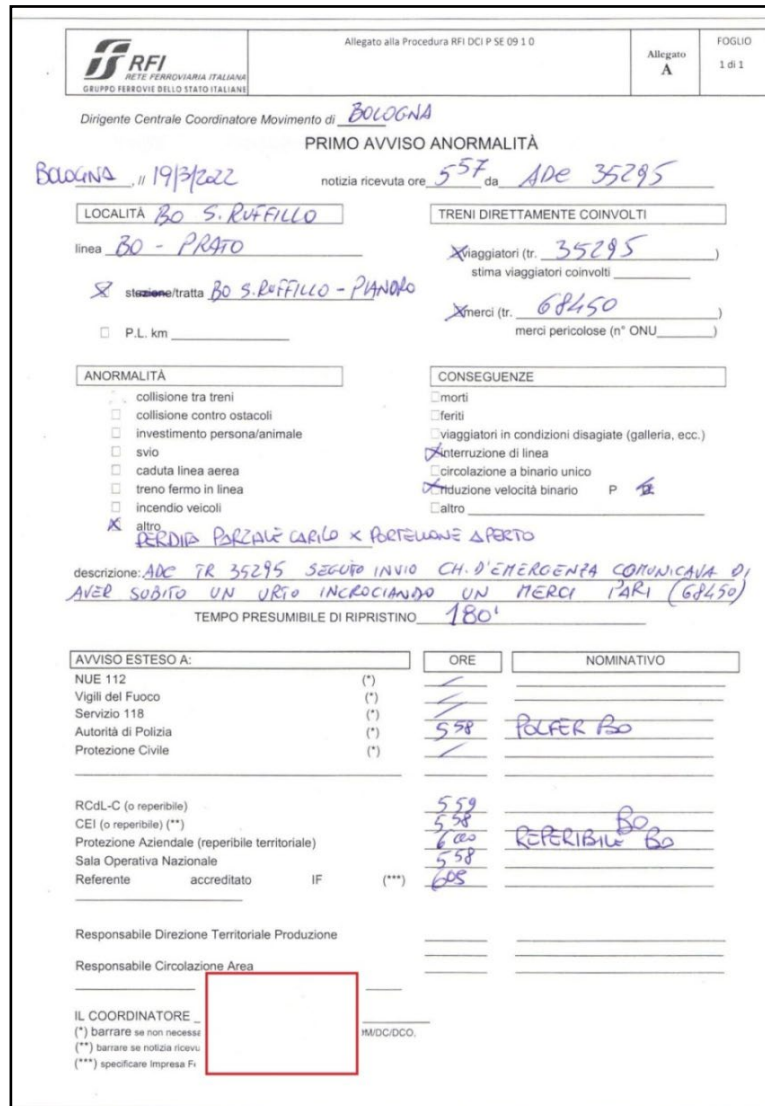 RFI
RETE FERROVIARIA ITALIANA
GRUPPO FERROVIE DELLO STATO ITALIANE
Allegato alla Procedura RFI DCI P SE 09 1 0
Allegato
A
FOGLIO
1 di 1
Dirigente Centrale Coordinatore Movimento di BOLOGNA
PRIMO AVVISO ANORMALITÀ
BOLOGNA, lì 19/3/2022 notizia ricevuta ore 5 57 da ADC 35295
LOCALITÀ BO S. RUFFILLO
linea BO - PRATO
stazione/tratta BO S. RUFFILLO - PIANORO
P.L. km
TRENI DIRETTAMENTE COINVOLTI
viaggiatori (tr. 35295 )
stima viaggiatori coinvolti
merci (tr. 68450 )
merci pericolose (n° ONU )
ANORMALITÀ
collisione tra treni
collisione contro ostacoli
investimento persona/animale
svio
caduta linea aerea
treno fermo in linea
incendio veicoli
altro
PERDITA PARZIALE CARICO X PORTELLONE APERTO
CONSEGUENZE
morti
feriti
viaggiatori in condizioni disagiate (galleria, ecc.)
interruzione di linea
circolazione a binario unico
riduzione velocità binario P
altro
descrizione: ADC TR 35295 SEGUITO INVIO CH. D'EMERGENZA COMUNICAVA DI
AVER SUBITO UN URTO INCROCIANDO UN MERCI PARI (68450)
TEMPO PRESUMIBILE DI RIPRISTINO 180'
AVVISO ESTESO A: ORE NOMINATIVO
NUE 112 (*)
Vigili del Fuoco (*)
Servizio 118 (*)
Autorità di Polizia (*) 5 58 POLFER BO
Protezione Civile (*)
RCdL-C (o reperibile) 5 59
CEI (o reperibile) (**) 5 58 BO
Protezione Aziendale (reperibile territoriale) 6 00 REPERIBILE BO
Sala Operativa Nazionale 5 58
Referente accreditato IF (***) 6 05
Responsabile Direzione Territoriale Produzione
Responsabile Circolazione Area
IL COORDINATORE
(*) barrare se non necessa M/DC/DCO.
(**) barrare se notizia ricevu
(***) specificare Impresa F